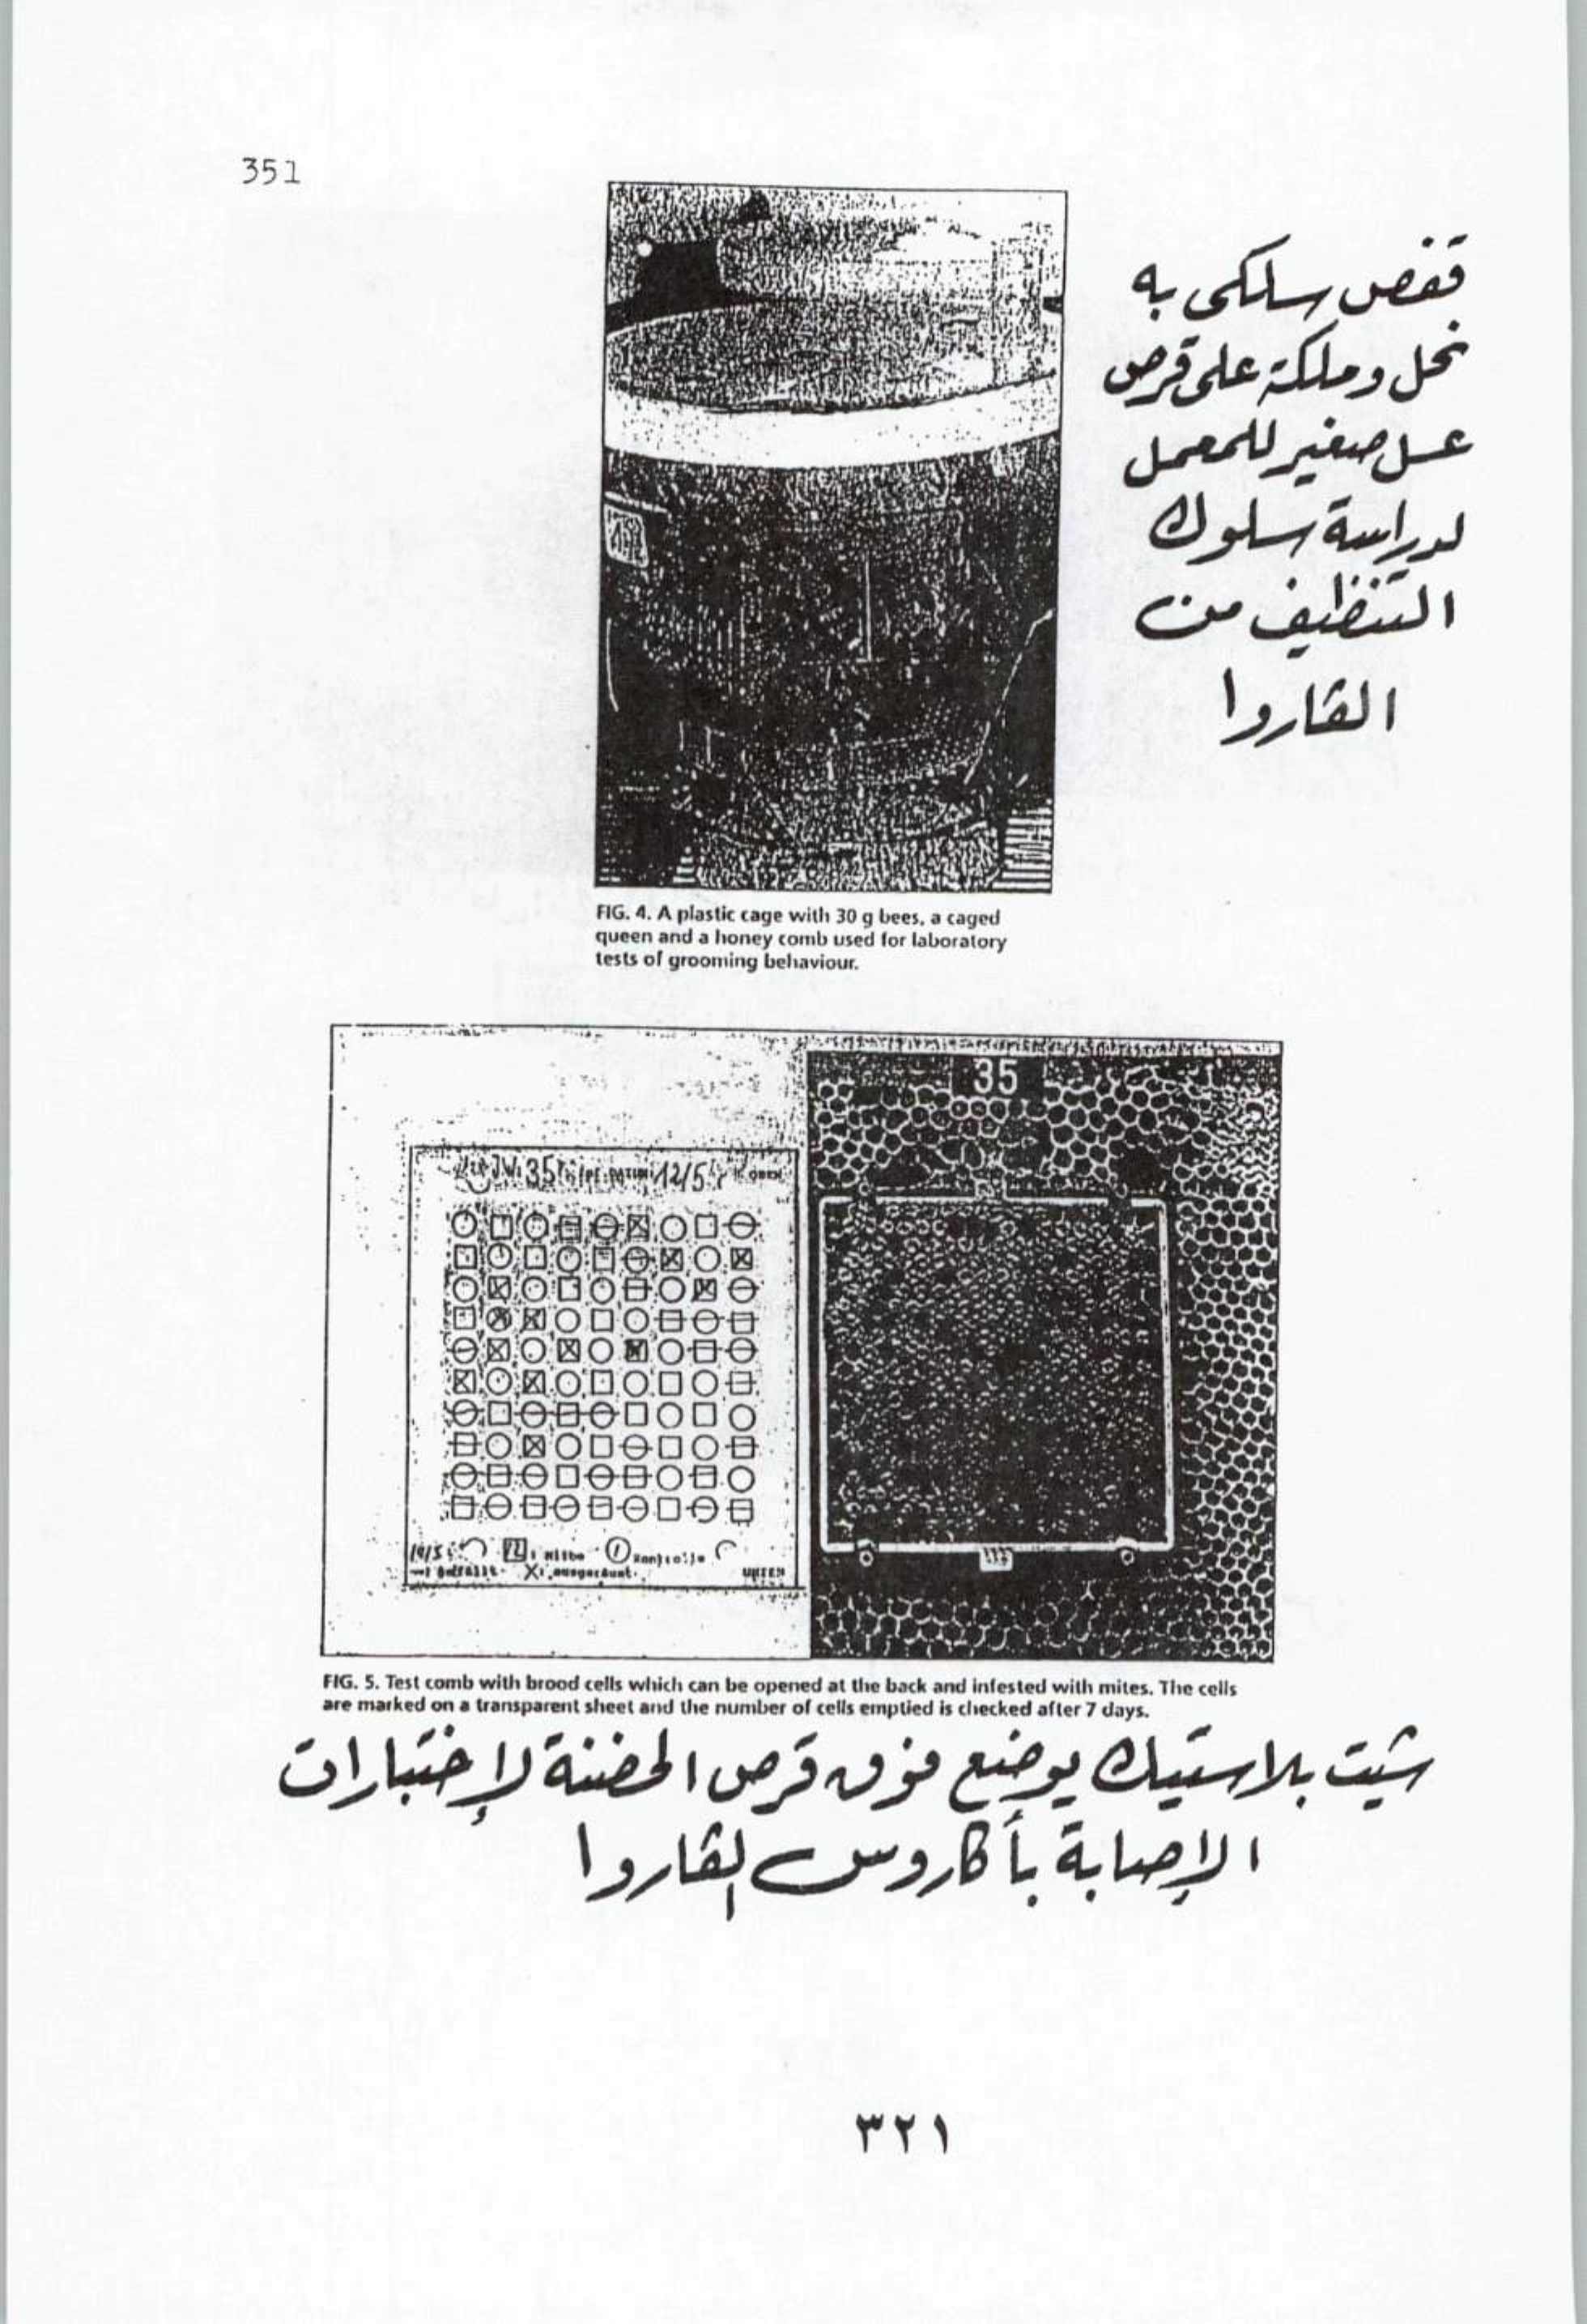 351
قفص سلكى به
نحل وملكة على قرص
عسل صغير للمعمل
لدراسة سلوك
التنظيف من
الڤاروا
FIG. 4. A plastic cage with 30 g bees, a caged
queen and a honey comb used for laboratory
tests of grooming behaviour.
35
35 12/5 OBEN
19/5 Milbe Kontrolle
X: ausgeräumt UNTEN
FIG. 5. Test comb with brood cells which can be opened at the back and infested with mites. The cells
are marked on a transparent sheet and the number of cells emptied is checked after 7 days.
شيت بلاستيك يوضع فوق قرص الحضنة لإختبارات
الإصابة بأكاروس الڤاروا
٣٢١